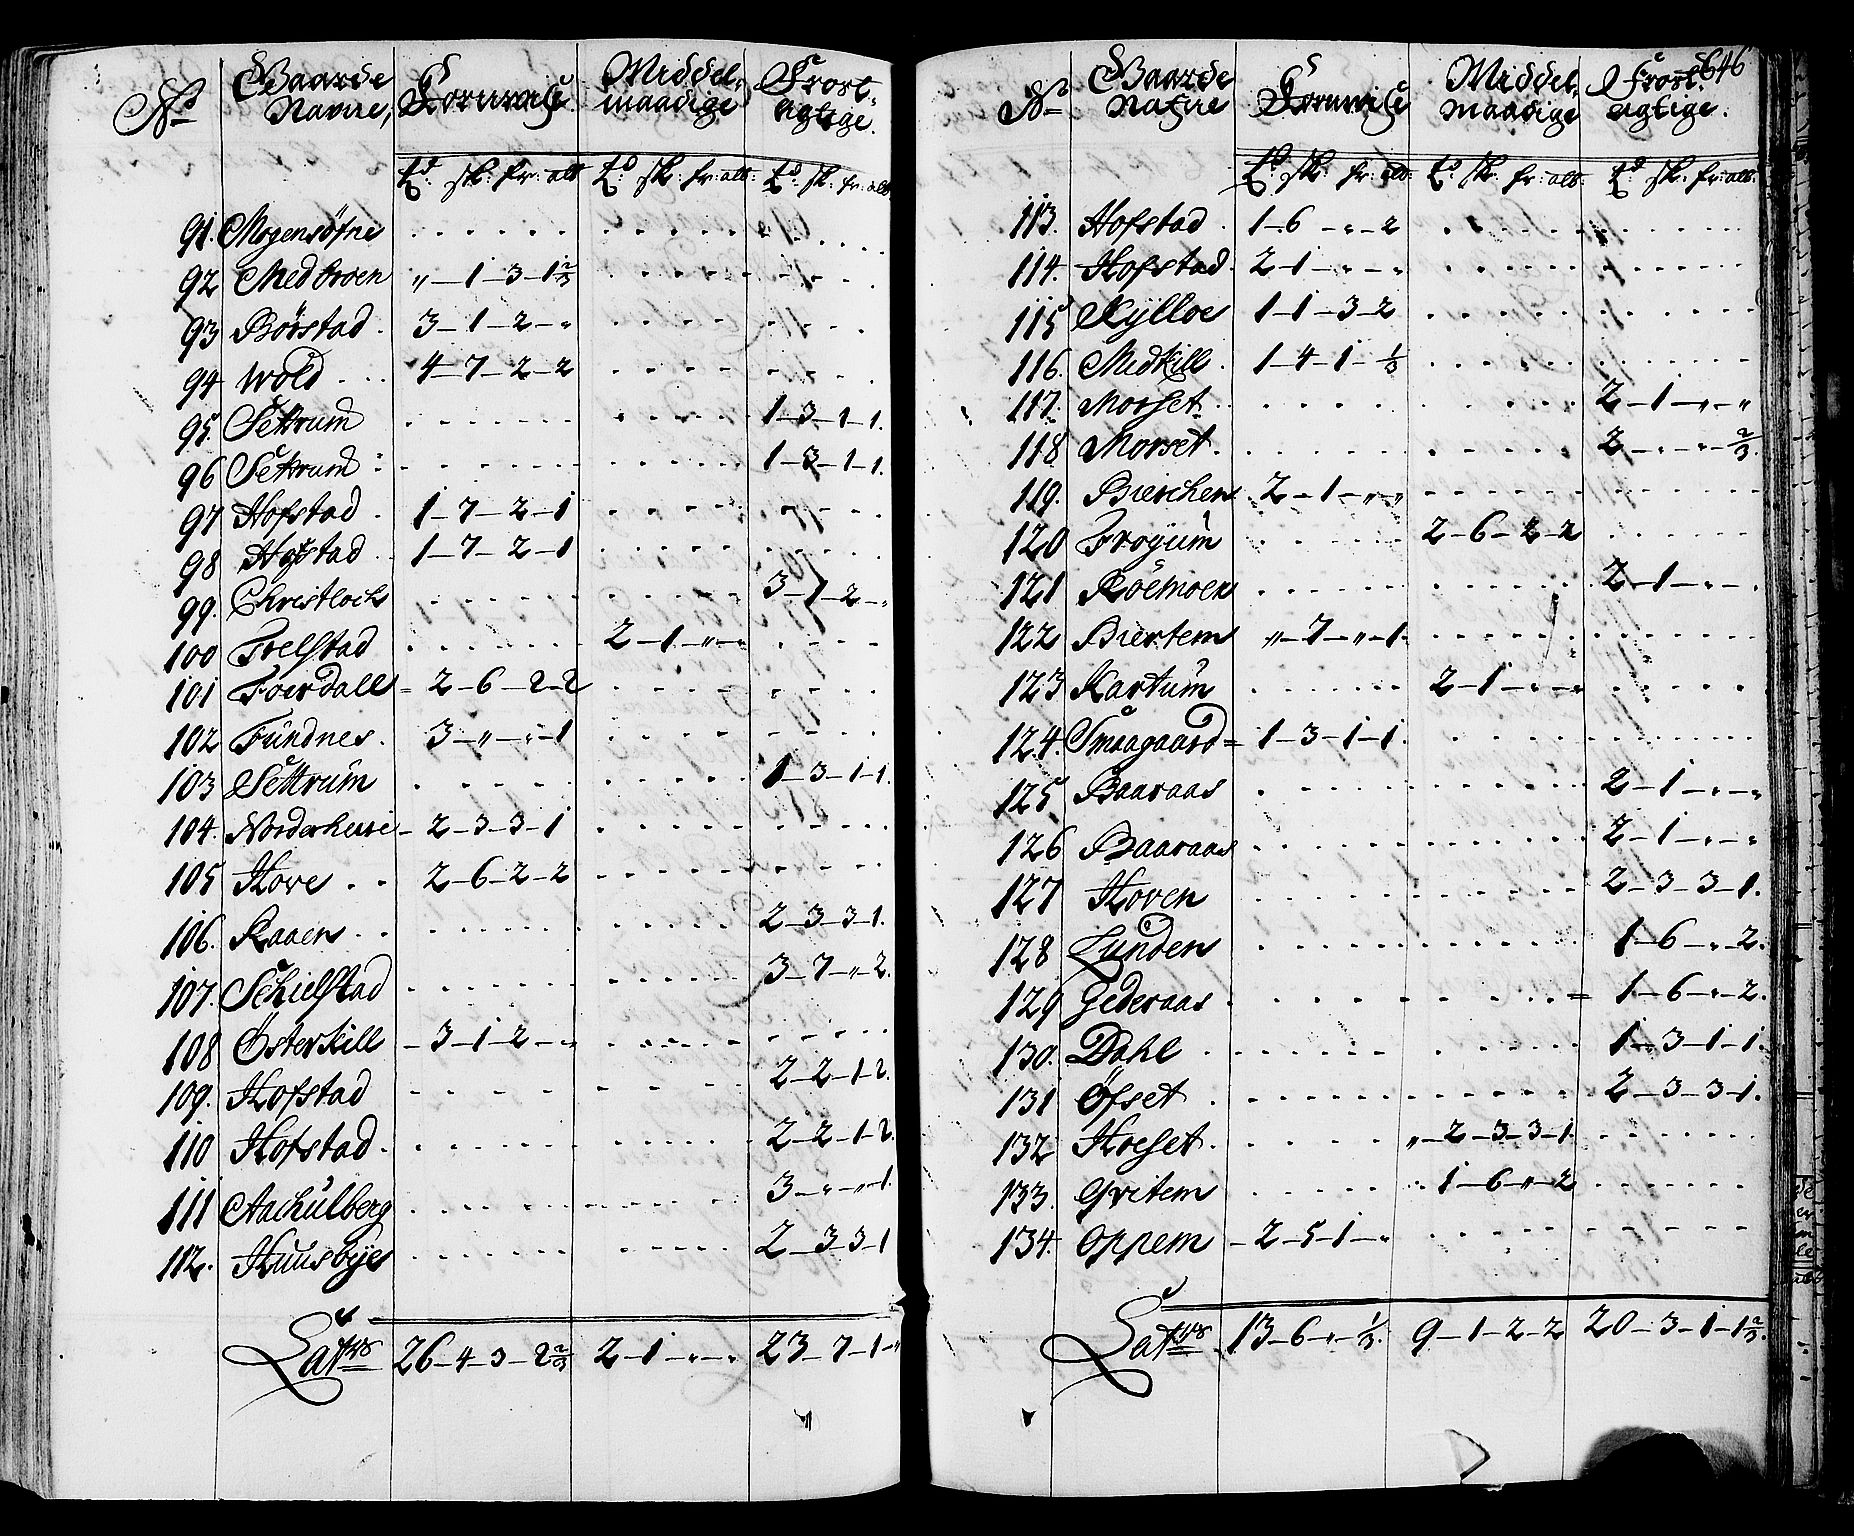 No Gaarde Navne, Kornvisse Middelmaadige Frostagtige.
td: sk: fr: alb td: sk: fr: alb: td: sk: fr: alb
91. Mogensöfne
92 Medbroen " – 1 – 3 – 1 2/3
93 Börstad. 3 – 1 – 2 – "
94 Wold 4 – 7 – 2 – 2
95. Settrum 1 – 3 – 1 – 1.
96 Settrum 1 – 3 – 1 – 1.
97 Hofstad 1 – 7 – 2 – 1
98 Hofstad 1 – 7 – 2 – 1
99. Christloch 3 – 7 – 2 – "
100 Trelstad 2 – 1 – " – "
101 Foerdall 2 – 6 – 2 – 2
102 Fundnes. 3 – " – " – 1
103 Settrum 1 – 3 – 1 – 1.
104. Norderhuus – 2 – 3 – 3 – 1
105 Hove 2 – 6 – 2 – 2
106. Raaen 2 – 3 – 3 – 1.
107. Schielstad 3 – 7 – " – 2.
108 Österkill – 3 – 1 – 2 – "
109. Hofstad 2 – 2 – 1 – 2.
110 Hofstad 2 – 2 – 1 – 2.
111 Aachulberg 3 – " – " – 1
112. Huusbye 2 – 3 – 3 – 1
Latus 26 – 4 – 3 – 2 2/3 2 – 1 – " – " 23 – 7 – 1 – "
646
No Gaarde Nafne Kornvisse Middelmaadige Frostagtige.
td: sk: fr: alb: td: sk: fr: alb: td: sk: fr: alb:
113. Hofstad 1 – 6 – " – 2
114. Hofstad. 2 – 1 – " – "
115 Kylloe 1 – 1 – 3 – 2
116. Medkill 1 – 4 – 1 – 1/3
117. Morset 2 – 1 – " – "
118 Morset. 2 – " – " – 2/3.
119. Bierchen 2 – 1 – " – "
120 Frøyum 2 – 6 – 2 – 2
121 Röemoen 2 – 1 – " – "
122 Biertem " – 7 – " – 1.
123 Kartum 2 – 1 – " – "
124. Smaagaard = 1 – 3 – 1 – 1.
125 Baaraas 2 – 1 – " – "
126 Baaraas 2 – 1 – " – "
127 Hoven 2 – 3 – 3 – 1.
128 Lunden 1 – 6 – " – 2.
129 Gederaas = 1 – 6 – " – 2.
130. Dahl 1 – 3 – 1 – 1.
131 Öfset 2 – 3 – 3 – 1.
132 Hoeset. " – 2 – 3 – 3 – 1.
133. Gritem 1 – 6 – " – 2
134. Oppem – 2 – 5 – 1 – "
Latus 13 – 6 – " – 1/3. 9 – 1 – 2 – 2 20 – 3 – 1 – 1 2/3.